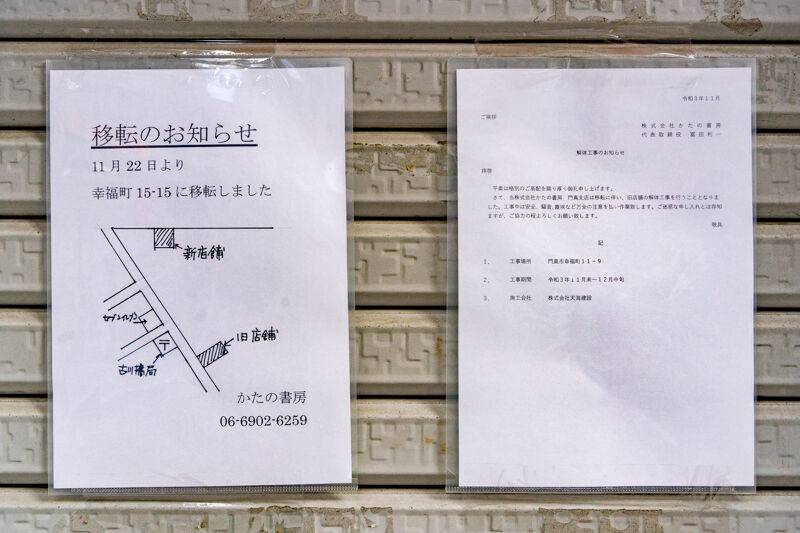 移転のお知らせ
11月22日より
幸福町15-15に移転しました
新店舗
セブンイレブン
〒
古川橋局
旧店舗
かたの書房
06-6902-6259
令和3年11月
ご挨拶
株式会社かたの書房
代表取締役 冨田利一
解体工事のお知らせ
拝啓
平素は格別のご高配を賜り厚く御礼申し上げます。
さて、当株式会社かたの書房 門真支店は移転に伴い、旧店舗の解体工事を行うこととなりま
した。工事中は安全、騒音、塵埃など万全の注意を払い作業致します。ご迷惑な申し入れとは存知
ますが、ご協力の程よろしくお願い致します。
敬具
記
1、 工事場所 門真市幸福町11-9
2、 工事期間 令和3年11月末～12月中旬
3、 施工会社 株式会社天海建設